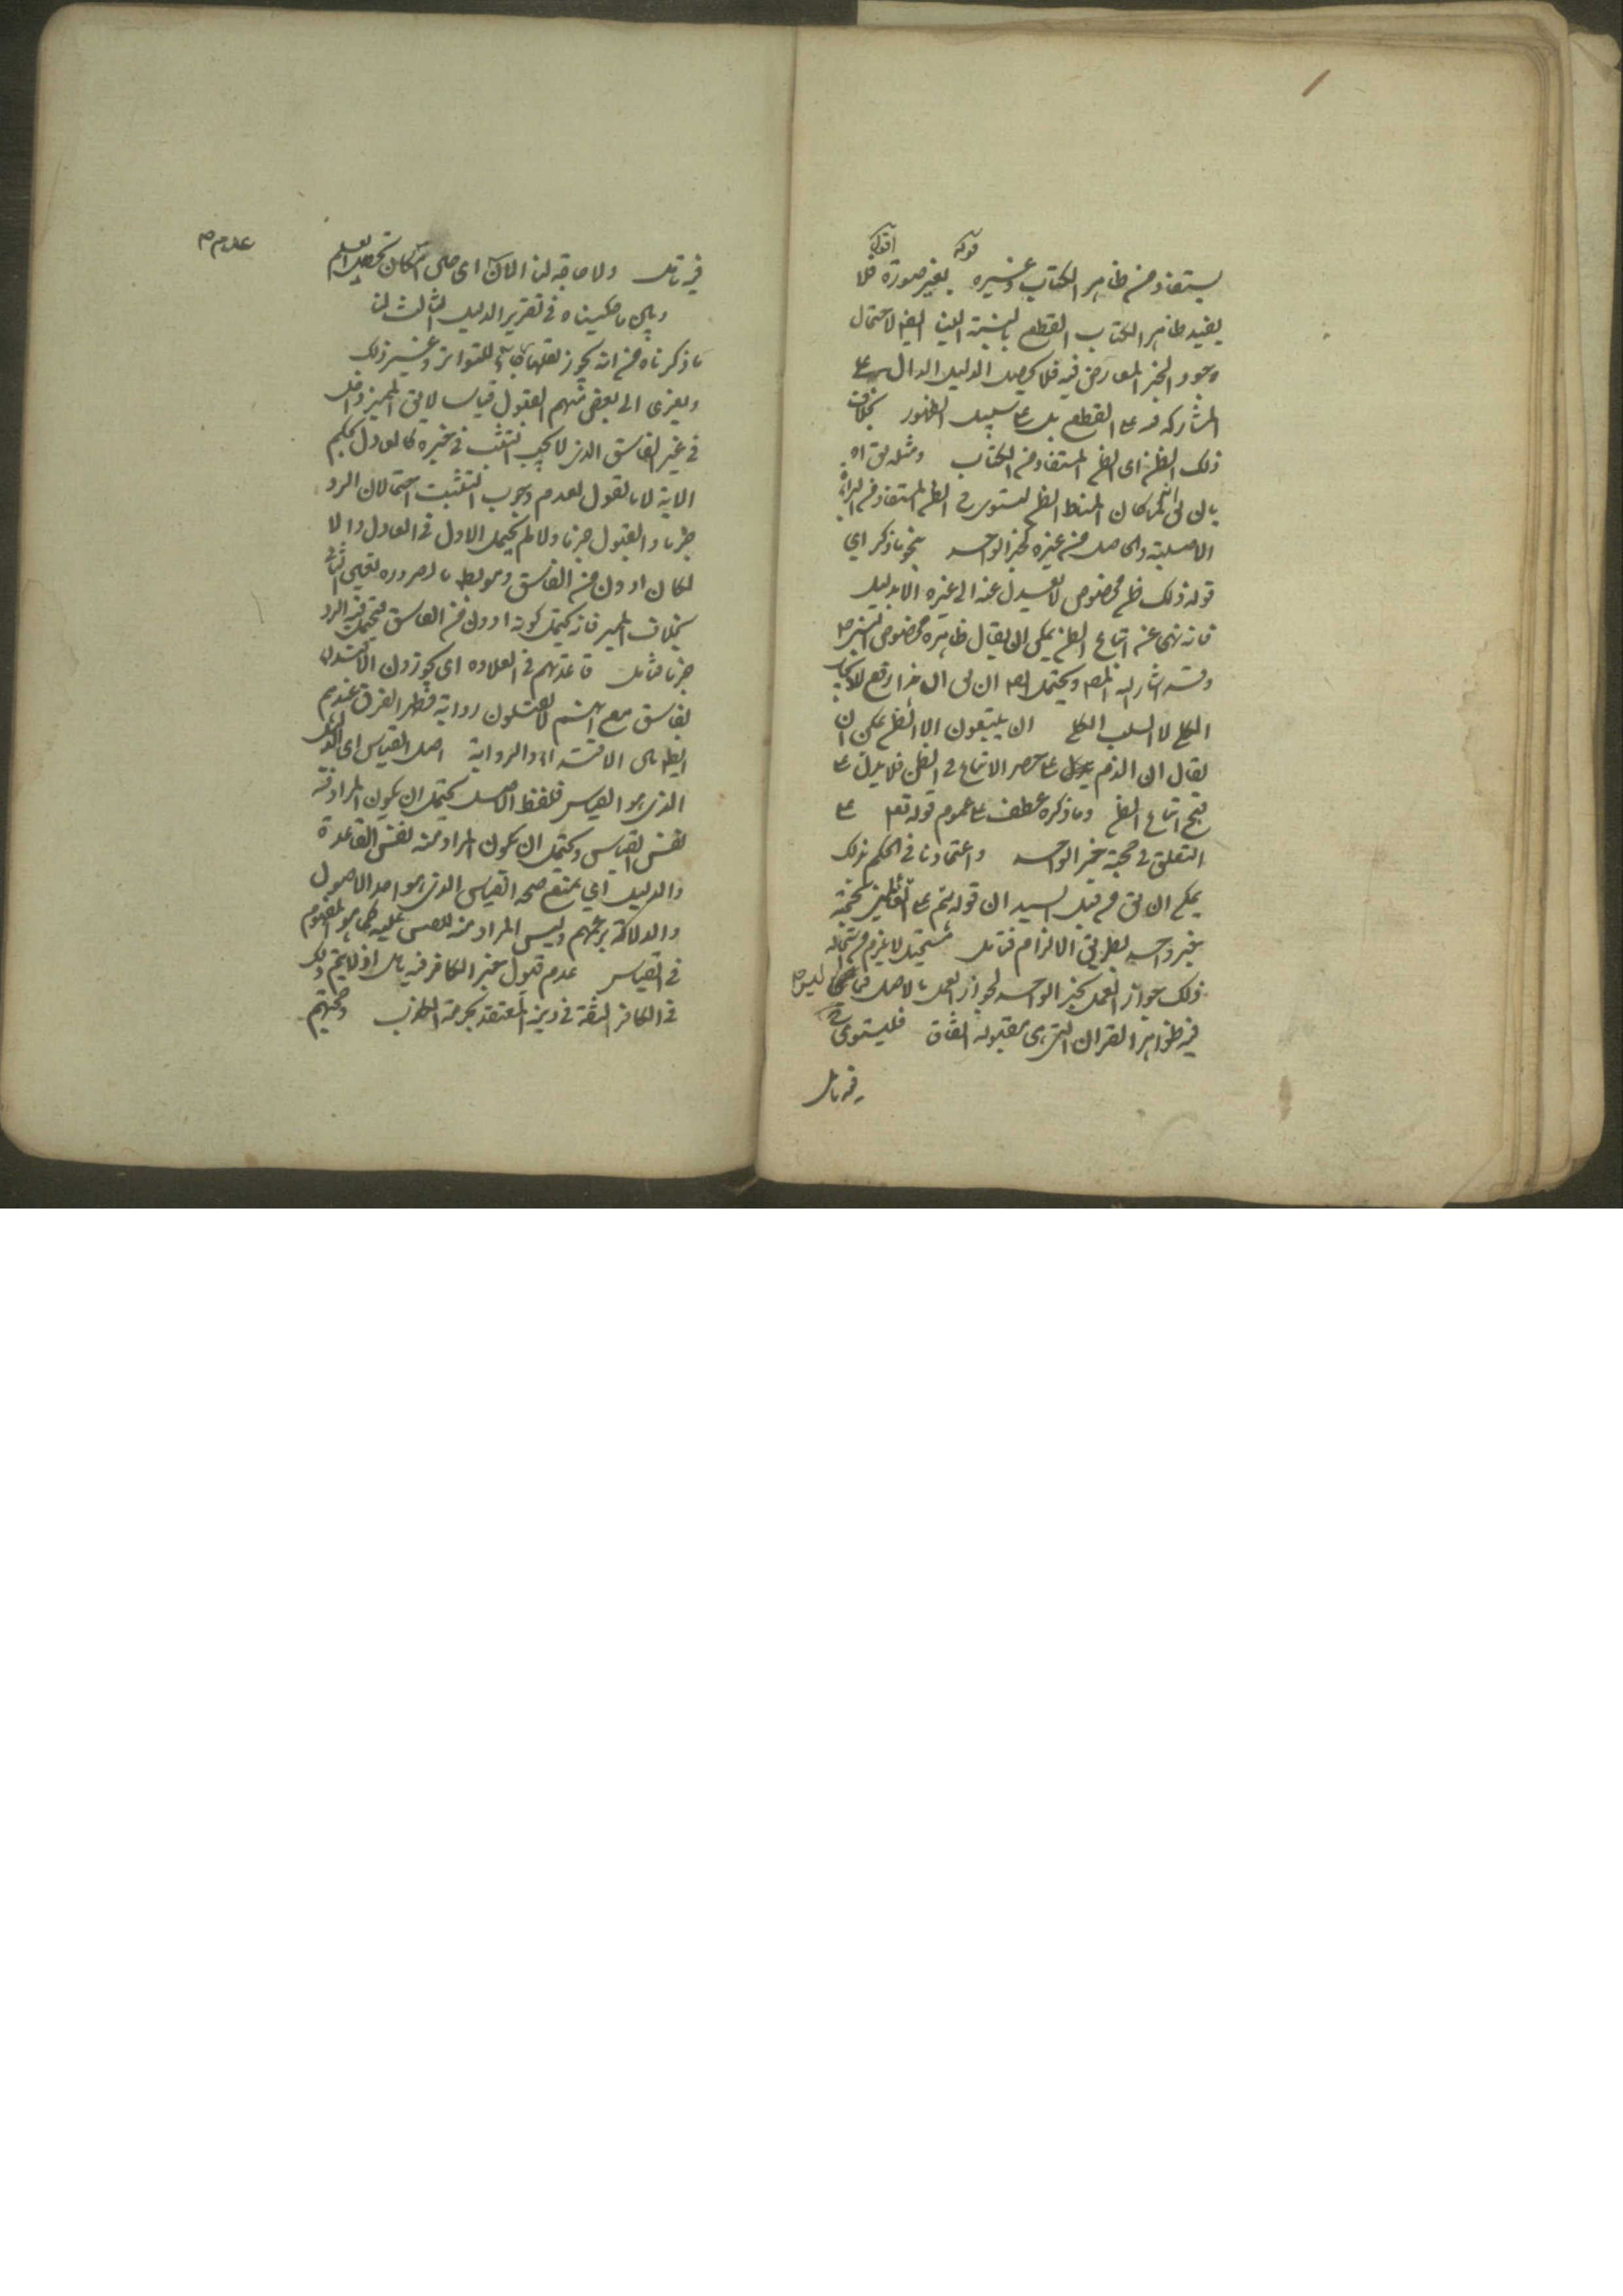 قوله اقول
يستفاد من ظاهر الكتاب وغيره بغير صورة فلا
يفيد ظاهر الكتاب القطع بالنسبة الينا ايضا لاحتمال
وجود الخبر المعارض فيه فلا يحصل الدليل الدال على
المشاركة على القطع بل على سبيل الظهور بخلاف
ذلك الظن اى الظن المستفاد من الكتاب ومثله يق اه
بان لما كان المناط الظن يستوى فى الظن المستفاد من البراءة
الاصلية والحاصل من غيره كخبر الواحد بنحو ما ذكر اي
قوله ذلك ظن مخصوص لا يعدل عنه الى غيره الا بدليل
فانه نهى عن اتباع الظن يمكن ان يقال ظاهره مخصوص
وقد اشار اليه المص ويحتمل رفع الايجاب
الكلي لا السلب الكلي ان يتبعون الا الظن يمكن ان
يقال ان الذم على حصر الاتباع فى الظن فلا يدل على
قبح اتباع الظن وما ذكره عطف على عموم قوله تع على
التعلق فى حجية خبر الواحد واعتمادنا فى الحكم بذلك
يمكن ان يق من قبل السيد ان قوله يتم على القائلين بحجية
خبر واحد بطريق الالزام فتامل مستحيل لا يلزم من استحالة
ذلك جواز العمل بخبر الواحد لجواز العمل بالاصل ليس
فيه ظواهر القران التى هى مقبوله اتفاق فليستوى
فيه تامل
فيه تامل ولا حاجة لنا الان اى حتى امكان تحصيل العلم
عدم
وباى ما حكيناه فى تقرير الدليل الثالث لنا
ما ذكرناه من انه يجوز للتواتر وغير ذلك
ويعزى الى بعض منهم القبول قياسا لا يق المميز داخل
فى غير الفاسق الذى لا يجب التثبت فى خبره كالعدل بحكم
الاية لانا نقول لعدم وجوب التثبت احتمالان الرد
جزما والقبول جزما ولما لم يحتمل الاول فى العادل والا
لكان ادون من الفاسق وهو بط بالضرورة تعين الثانى
بخلاف المميز فانه يحتمل كونه ادون من الفاسق فيحتمل فيه الرد
جزما فتامل قاعدتهم فى العلاوة اى يجوزون الاقتداء
بفاسق مع انهم لا يقبلون رواية فظهر الفرق عندهم
ايضا بين الاقتداء والرواية اصل القياس اى
الذى هو القياس فلفظ الاصل يحتمل ان يكون المراد منه
نفس القياس ويحتمل ان يكون المراد منه نفس القاعدة
والدليل اي يمنع صحة القياس الذى هو احد الاصول
والدلائل بزعمهم وليس المراد منه المقيس عليه كما هو المفهوم
فى القياس عدم قبول خبر الكافر فيه تامل اذ لا يتم ذلك
فى الكافر الثقة فى دينه المعتقد بحرمة الكذب وحجتهم